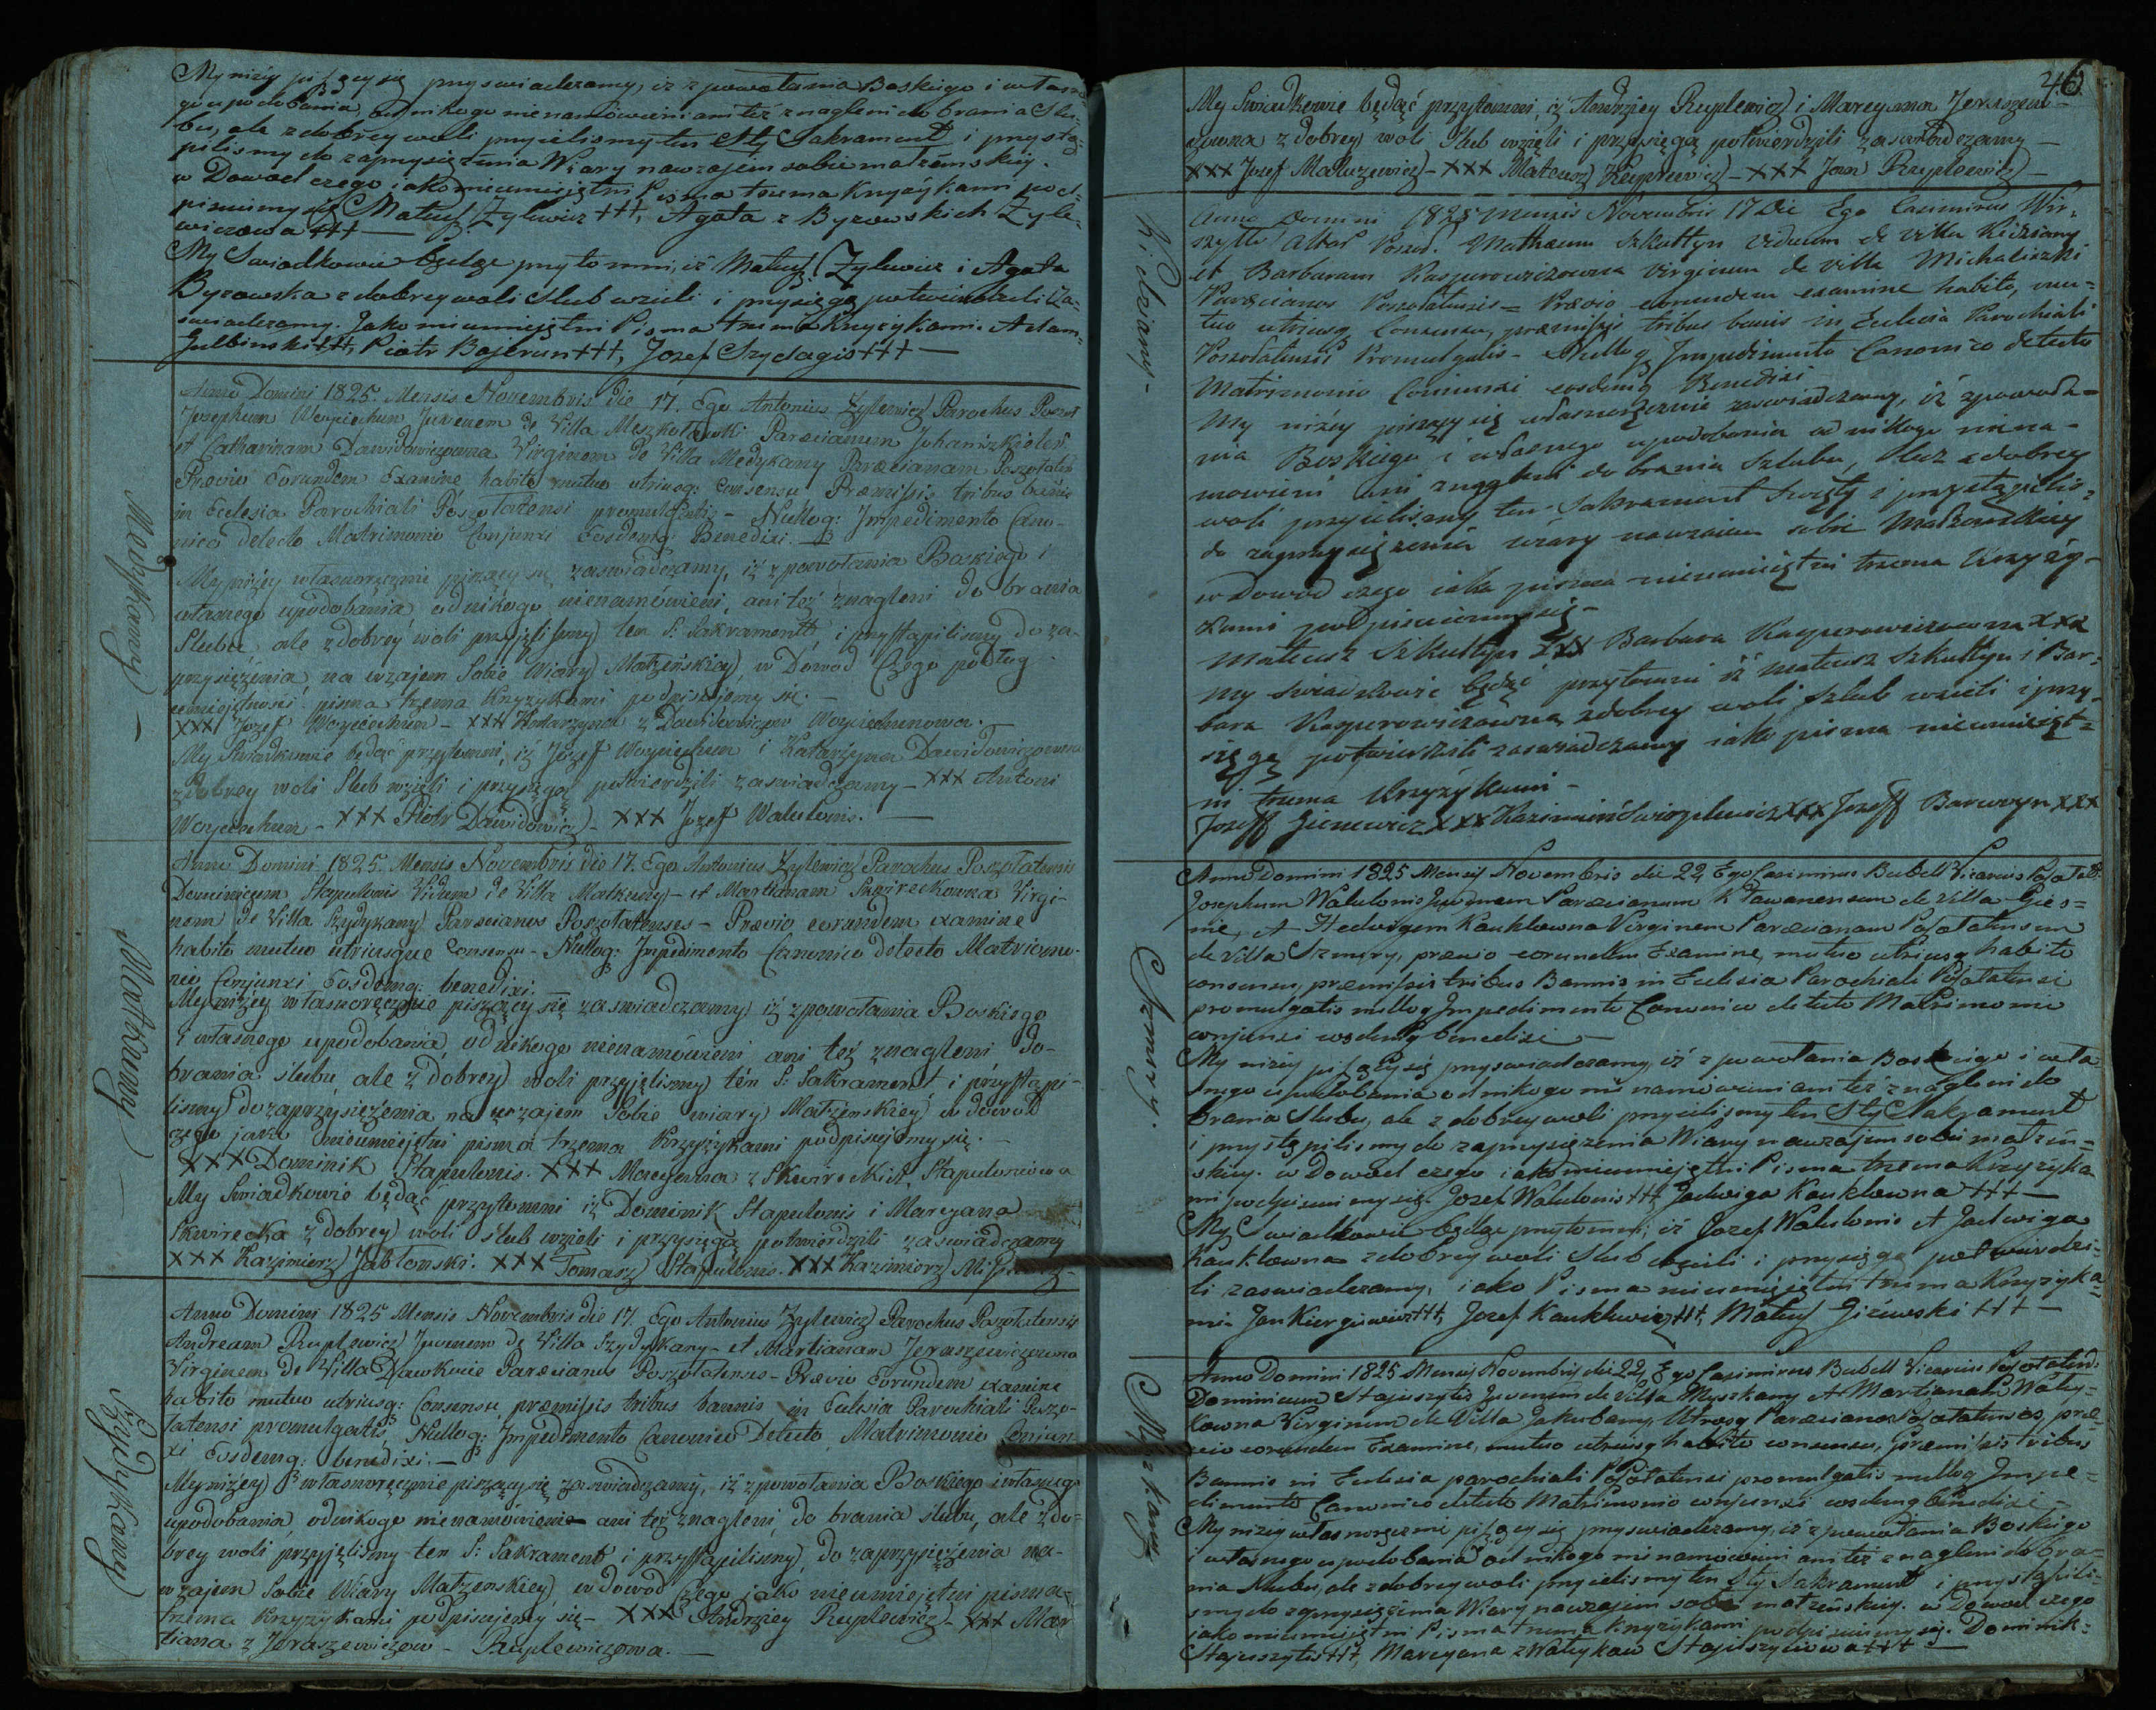 My niżéy piszący się przyswiadczamy, iż z powołania Boskiego i własne-
go upodobania, od nikogo nienamówieni ani też znagleni do brania Slu-
bu, ale z dobrey woli przyieliśmy ten Sty Sakrament i przystą-
piliśmy do zaprzysiężenia Wiary nawzajem sobie małżenskiey.
w Dowod czego iako nieumieiętni Pisma trzema Krzyżykami pod-
pisuiemy się Mateusz Żylewicz +++, Agata z Byzowskich Żyle-
wiczowa +++ —
My Swiadkowie będąc przytomni, iż Mateusz Żylewicz i Agata
Byzowska z dobrey woli slub wzieli i przysięgą potwierdzili za-
swiadczamy. Jako nieumiejętni Pisma trzema Krzyżykami. Adam
Gulbinski +++, Piotr Bajerun +++, Jozef Szydagis +++ —
Medykany —
Anno Domini 1825. Mensis Novembris die 17. Ego Antonius Żylewicz Parochus Poszoł
Josephum Woyciechun Juvenem de Villa Meszkołauki Paræcianum Johaniszkielen
et Catharinam Dawidowiczowna Virginem de Villa Medykany Paræcianam Poszołaten
Prævio Eorundem Examine habito mutuo utriusq: Consensu Præmissis tribus bannis
in Eclesia Parochiali Poszołatensi promulgatis - Nulloq: Impedimento Cano-
nico detecto Matrimonio Conjunxi Eosdemq: Benedixi. —
My niżéy własnoręcznie piszący się zaswiadczamy, iż z powołania Boskiego i
własnego upodobania od nikogo nienamówieni, ani też znagleni do brania
Slubu, ale z dobréy woli przyjęlismy ten S: Sakrament i przystąpilismy do za-
przysiężenia na wzajem Sobie Wiary Małżeńskiey, w Dowod Czego podług
umiejętnosci pisma trzema Krzyżykami podpisuiemy się. —
XXX Jozef Woyciechun - XXX Katarzyna z Dawidowiczow Woyciechunowa. —
My Swiadkowie będąc przytomni, iż Józef Woyciechun i Katarzyna Dawidowiczowna
z dobrey woli Slub wzięli i przysięgą potwierdzili zaswiadczamy - XXX Antoni
Woyciechun - XXX Piotr Dawidowicz - XXX Jozef Walulonis. —
Matkuny —
Anno Domini 1825. Mensis Novembris die 17. Ego Antonius Żylewicz Parochus Poszołatensis
Dominicum Stapulonis Viduum de Villa Matkuny - et Martianam Skwireckowna Virgi-
nem de Villa Szydykany Paræcianos Poszołatenses - Prævio eorundem examine
habito mutuo utriusque Consensu - Nulloq: Impedimento Canonico detecto Matrimo-
nio Conjunxi Eosdemq: benedixi. —
My niżéy własnoręcznie piszący się zaswiadczamy iż z powołania Boskiego
i własnego upodobania, od nikogo nienamówieni, ani też znagleni do-
brania slubu, ale z dobrey woli przyjęlismy ten S: Sakrament i przystąpi-
lismy do zaprzysiężenia na wzajem Sobie wiary Małżenskiey w dowod
czego jako nieumiejętni pisma trzema Krzyżykami podpisujemy się. —
XXX Dominik Stapulonis. XXX Marcyanna z Skwireckich Stapuloniowa
My Swiadkowie będąc przytomni iż Dominik Stapulonis i Marcyana
Skwirecka z dobrey woli slub wzieli i przysięgą potwierdzili zaswiadczamy
XXX Kazimierz Jabłonski. XXX Tomasz Stapulonis. XXX Kazimierz
Szydykany
Anno Domini 1825 Mensis Novembris die 17. Ego Antonius Żylewicz Parochus Poszołatensis
Andream Ruplewicz Juvenem de Villa Szydykany - et Martianam Jeraszewiczowna
Virginem de Villa Dawkucie Paræcianos Poszołatenses - Prævio Eorundem examine
habito mutuo utriusq: Consensu præmissis tribus bannis in Eclesia Parochiali Poszo-
łatensi promulgatis Nulloq: Impedimento Canonico Detecto Matrimonio Conjun-
xi Eosdemq: benedixi. —
My niżéy własnoręcznie piszący się zaswiadczamy, iż z powołania Boskiego i własnego
upodobania, od nikogo nienamówieni — ani też znagleni, do brania slubu, ale z do-
brey woli przyjęlismy ten S: Sakrament i przystąpilismy, do zaprzysiężenia na-
wzajem Sobie Wiary Małżenskiey w dowod czego jako nieumiejętni pisma-
trzema Krzyżykami podpisujemy się - XXX Andrzey Ruplewicz - XXX Mar
tiana z Jeraszewiczow - Ruplewiczowa. —
246
My Swiadkowie będąc przytomni, iż Andrzey Ruplewicz i Marcyana Jeraszewi-
czowna z dobrey woli Slub wzięli i przysięgą potwierdzili zaswiadczamy —
XXX Jozef Maluzewicz - XXX Mateusz Ruplewicz - XXX Jozef Ruplewicz —
Kidziany -
Anno Domini 1825 Mensis Novembris 17 Die Ego Casimirus Wir-
szyłło Altar Poszoł. Mathæum Szkultyn viduum de villa Kidziany
et Barbaram Kasperowiczowna virginem de villa Michaliszki
Paræcianos Poszołatensis = Prævio eorundem examine habito, mu-
tuo utriusq consensu, præmissis tribus banis in Eclesia Parochiali
Poszołatensis Promulgatis - Nulloq Impedimento Canonico detecto
Matrimonio Coniunxi eosdemq Benedixi
My niżéy piszący się własnoręcznie zaswiadczamy, iż z powoła-
nia Boskiego i własnego upodobania od nikogo niena-
mowieni ani znagleni do brania szlubu, lecz z dobrey
woli przyielismy ten Sakrament Swięty i przystąpilis-
do zaprzysiężenia wiary nawzaiem sobie Małżenskiey
w Dowod czego iako pisma nieumieiętni trzema Krzyży-
kami podpisuiemy się -
Mateusz Szkultyn XXX Barbara Kasperowiczowna XXX
My swiadkowie będąc przytomni iż Mateusz Szkultyn i Bar-
bara Kasperowiczowna z dobrey woli szlub wzieli i przy-
sięgą potwierdzili zaswiadczamy iako pisma nieumieięt-
ni trzema Krzyżykami -
Jozeff XXX Kazimierz XXX Jozeff XXX
Szmury.
Anno Domini 1825 Mensis Novembris die 22 Ego Casimirus Bubell Vicarius Poszołat:
Josephum Walulonis Juvenem Paræcianum de Villa Gies=
nie, et Hedvigem Kauklowna Virginem Paræcianam Poszołatensem
de Villa Szmury, prævio eorundem Examine, mutuo utriusq habito
consensu, præmissis tribus Bannis in Eclesia Parochiali Poszołatensi
promulgatis nulloq Impedimento Canonico detecto Matrimonio
conjunxi eosdemq benedixi —
My niżéy piszący się przyswiadczamy, iż z powołania Boskiego i wła-
snego upodobania od nikogo nie namówieni ani też znagleni do
brania Slubu, ale z dobrey woli przyielismy ten Sty Sakrament
i przystąpilismy do zaprzysiężenia Wiary nawzajem sobie małżen-
skiey. w Dowod czego iako nieumiejętni Pisma trzema Krzyżyka
mi podpisuiemy się. Jozef Walulonis +++, Jadwiga Kauklowna +++ —
My Swiadkowie będąc przytomni, iż Jozef Walulonis et Jadwiga
Kauklowna z dobrey woli slub wzieli i przysięgą potwierdzi-
li zaswiadczamy, iako Pisma nieumiejętni trzema Krzyżyka-
mi Jan Kiergiewicz +++, Jozef Kauklewicz +++, Mateusz Giżewski +++ —
Myszkany
Anno Domini 1825 Mensis Novembris die 22, Ego Casimirus Bubell Vicarius Poszołaten:
Dominicum Stajuszytis Juvenem de Villa Myszkany et Martianam Waley-
kowna Virginem de Villa Jakubany, Utrosq Paræcianos Poszołatensos, præ-
vio eorundem Examine, mutuo utriusq habito consensu, præmissis tribus
Bannis in Eclesia parochiali Poszołatensi promulgatis nulloq Impe-
dimento Canonico detecto Matrimonio conjunxi eosdemq benedixi —
My niżéy własnoręcznie piszący się przyswiadczamy, iż z powołania Boskiego
i własnego upodobania od nikogo nie namówieni ani też znagleni do bra-
nia Slubu, ale z dobrey woli przyielismy ten Sty Sakrament i przystąpili-
smy do zaprzysiężenia Wiary nawzajem sobie małżeńskiey. w Dowod czego
jako nieumiejętni Pisma trzema Krzyżykami podpisuiemy się. Dominik-
Stajuszytis +++, Marcyana z Waleykow Stajuszyciowa +++ —